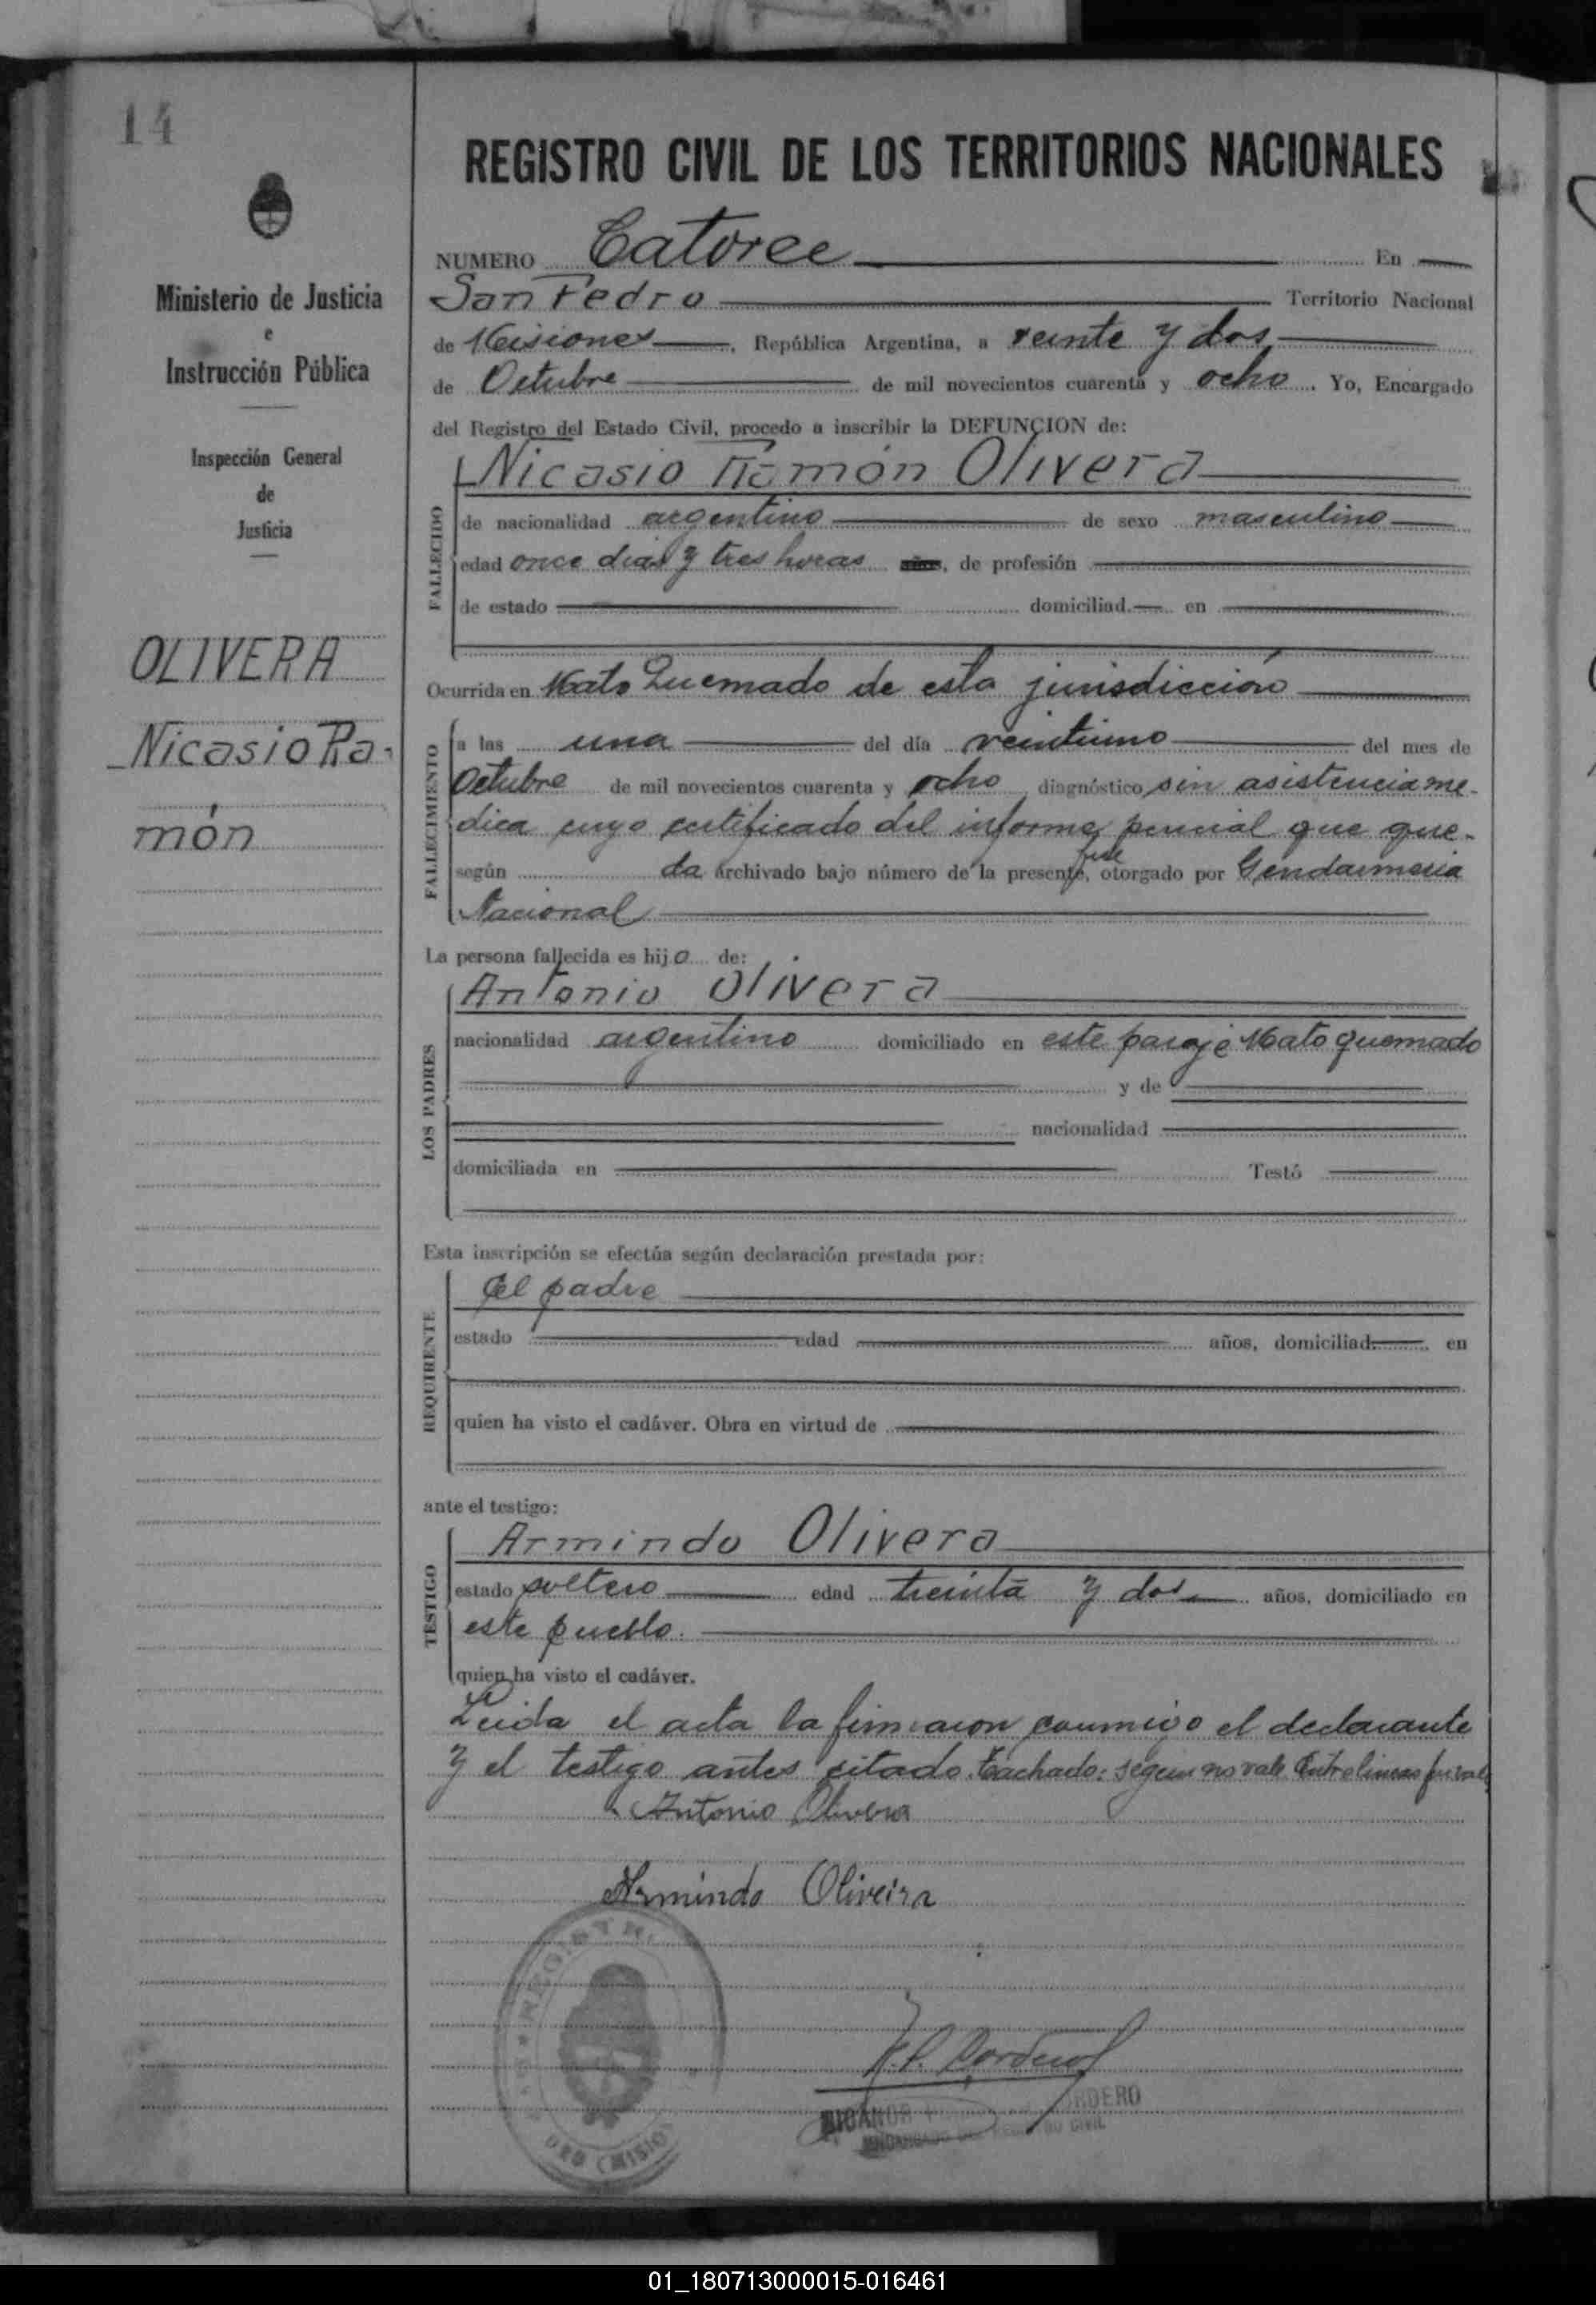 14
Ministerio de Justicia
e
Instrucción Pública
Inspección General
de
Justicia
OLIVERA
Nicasio Ra-
món
REGISTRO CIVIL DE LOS TERRITORIOS NACIONALES
NUMERO Catorce En
San Pedro Territorio Nacional
de Misiones, República Argentina, a veinte y dos
de Octubre de mil novecientos cuarenta y ocho. Yo, Encargado
del Registro del Estado Civil, procedo a inscribir la DEFUNCION de:
FALLECIDO
Nicasio Ramón Olivera
de nacionalidad argentino de sexo masculino
edad once dias y tres horas años, de profesión
de estado domiciliad en
Ocurrida en Mato Quemado de esta jurisdicción
FALLECIMIENTO
a las una del día veintiuno del mes de
Octubre de mil novecientos cuarenta y ocho diagnóstico sin asistencia me-
dica cuyo certificado del informe pericial que que-
según da archivado bajo número de la presente, fue otorgado por Gendarmeria
Nacional
La persona fallecida es hijo de:
LOS PADRES
Antonio Olivera
nacionalidad argentino domiciliado en este paraje Mato quemado
y de
nacionalidad
domiciliada en Testó
Esta inscripción se efectúa según declaración prestada por:
REQUIRENTE
El padre
estado edad años, domiciliad en
quien ha visto el cadáver. Obra en virtud de
ante el testigo:
TESTIGO
Armindo Olivera
estado soltero edad treinta y dos años, domiciliado en
este pueblo.
quien ha visto el cadáver.
Leida el acta la firmaron conmigo el declarante
y el testigo antes citado. Tachado: segun no vale Entre lineas fue vale
Antonio Olivera
Armindo Oliveira
REGISTR
(MISIO
N.P. Cordero
NICANOR P CORDERO
ENCARGADO DEL REGISTRO CIVIL
01_180713000015-016461